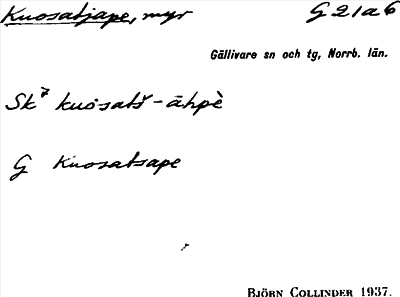 Kuosatjape, myr G 21 a 6
Gällivare sn och tg, Norrb. län.
Sk⁷ kuosatš-āhpè
G Kuosatsape
BJÖRN COLLINDER 1937.